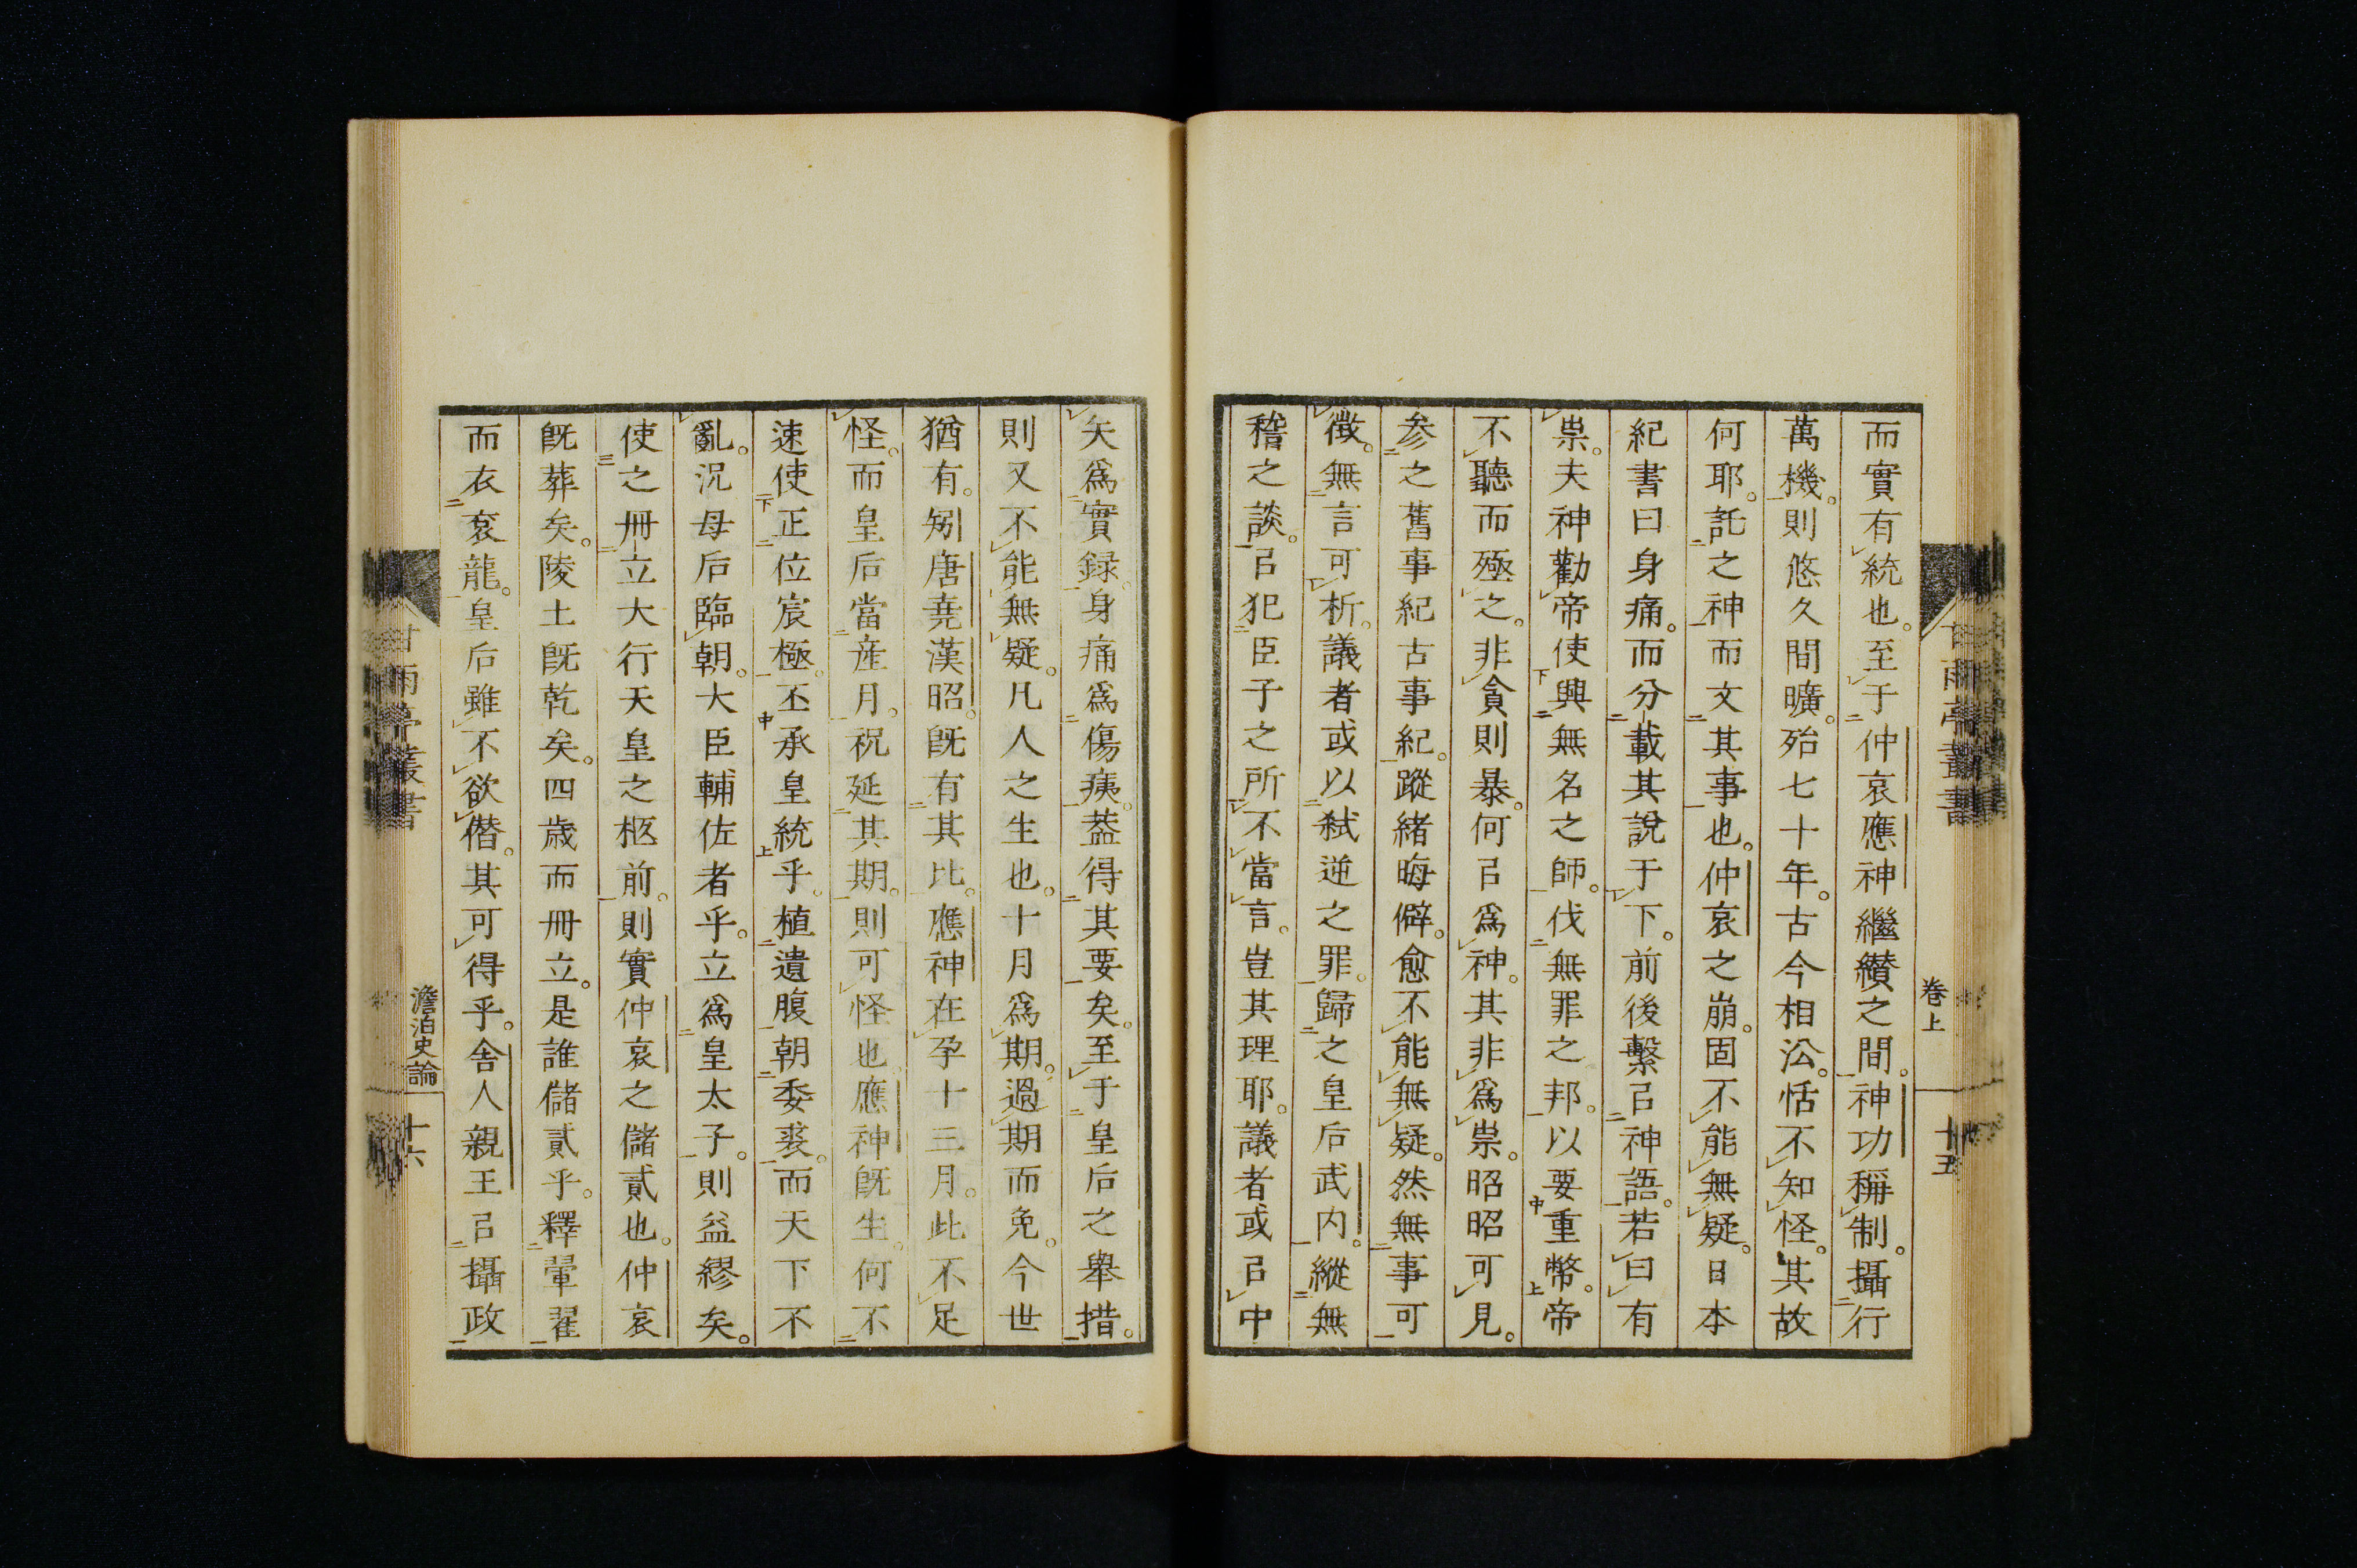 而實有統也。至于仲哀應神繼纉之間。神功稱制。攝行
萬機。則悠久間曠。殆七十年。古今相沿。恬不知怪。其故
何耶。託之神而文其事也。仲哀之崩。固不能無疑。日本
紀書曰身痛。而分載其說于下。前後繫㠯神語。若曰有
祟。夫神勸帝使興無名之師。伐無罪之邦。以要重幣。帝
不聽而殛之。非貪則暴。何㠯爲神。其非爲祟。昭昭可見。
参之舊事紀古事紀。蹤緒晦僻。愈不能無疑。然無事可
徵。無言可析。議者或以弑逆之罪。歸之皇后武内。縱無
稽之談。㠯犯臣子之所不當言。豈其理耶。議者或㠯中
卷上
十五
矢爲實録。身痛爲傷痍。葢得其要矣。至于皇后之舉措。
則又不能無疑。凡人之生也。十月爲期。過期而免。今世
猶有。矧唐堯漢昭。旣有其比。應神在孕十三月。此不足
怪。而皇后當産月。祝延其期。則可怪也。應神旣生。何不
速使正位宸極。丕承皇統乎。植遺腹朝委裘。而天下不
亂。況母后臨朝。大臣輔佐者乎。立爲皇太子。則益繆矣。
使之冊立大行天皇之柩前。則實仲哀之儲貳也。仲哀
旣葬矣。陵土旣乾矣。四歲而冊立。是誰儲貳乎。釋翬翟
而衣袞龍。皇后雖不欲僭。其可得乎。舍人親王㠯攝政
甘雨亭叢書
澹泊史論
十六